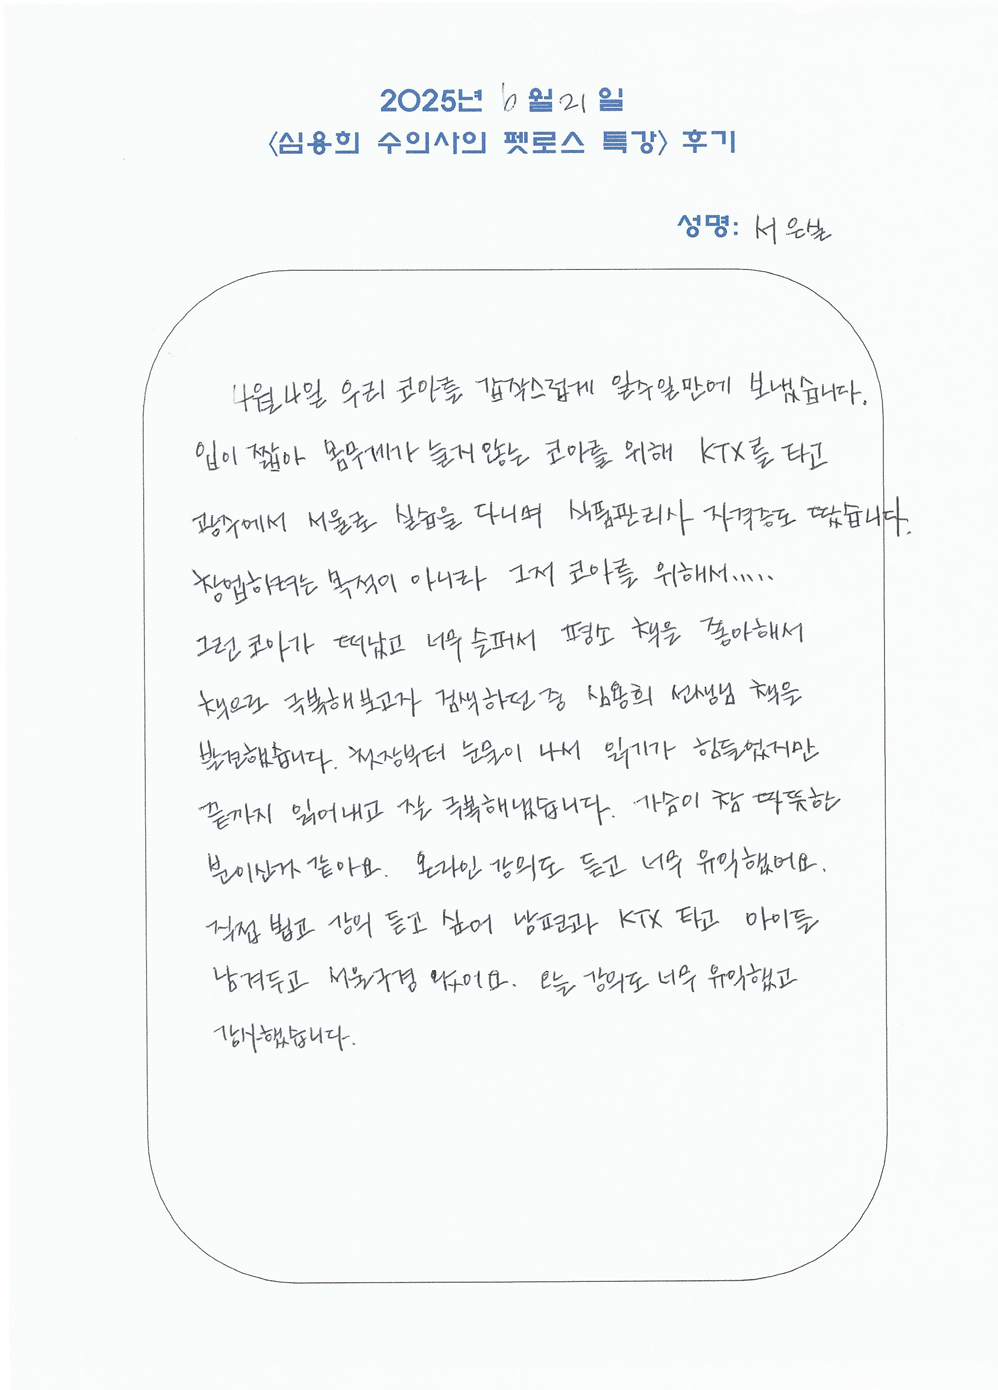 2025년 6월 21일
<심용희 수의사의 펫로스 특강> 후기
성명: 서은빛
4월 4일 우리 코아를 갑작스럽게 일주일만에 보냈습니다.
입이 짧아 몸무게가 늘지 않는 코아를 위해 KTX를 타고
광주에서 서울로 실습을 다니며 식품관리사 자격증도 땄습니다.
창업하려는 목적이 아니라 그저 코아를 위해서.....
그런 코아가 떠났고 너무 슬퍼서 평소 책을 좋아해서
책으로 극복해보고자 검색하던 중 심용희 선생님 책을
발견했습니다. 첫장부터 눈물이 나서 읽기가 힘들었지만
끝까지 읽어내고 잘 극복해냈습니다. 가슴이 참 따뜻한
분이신거 같아요. 온라인 강의도 듣고 너무 유익했어요.
직접 뵙고 강의 듣고 싶어 남편과 KTX 타고 아이들
남겨두고 서울구경 왔어요. 오늘 강의도 너무 유익했고
감사했습니다.